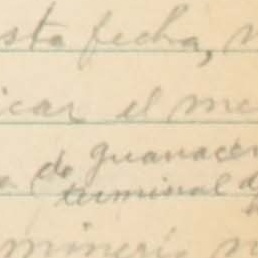 sta fecha,
icar el me
de guanacen
terminal d
minerí